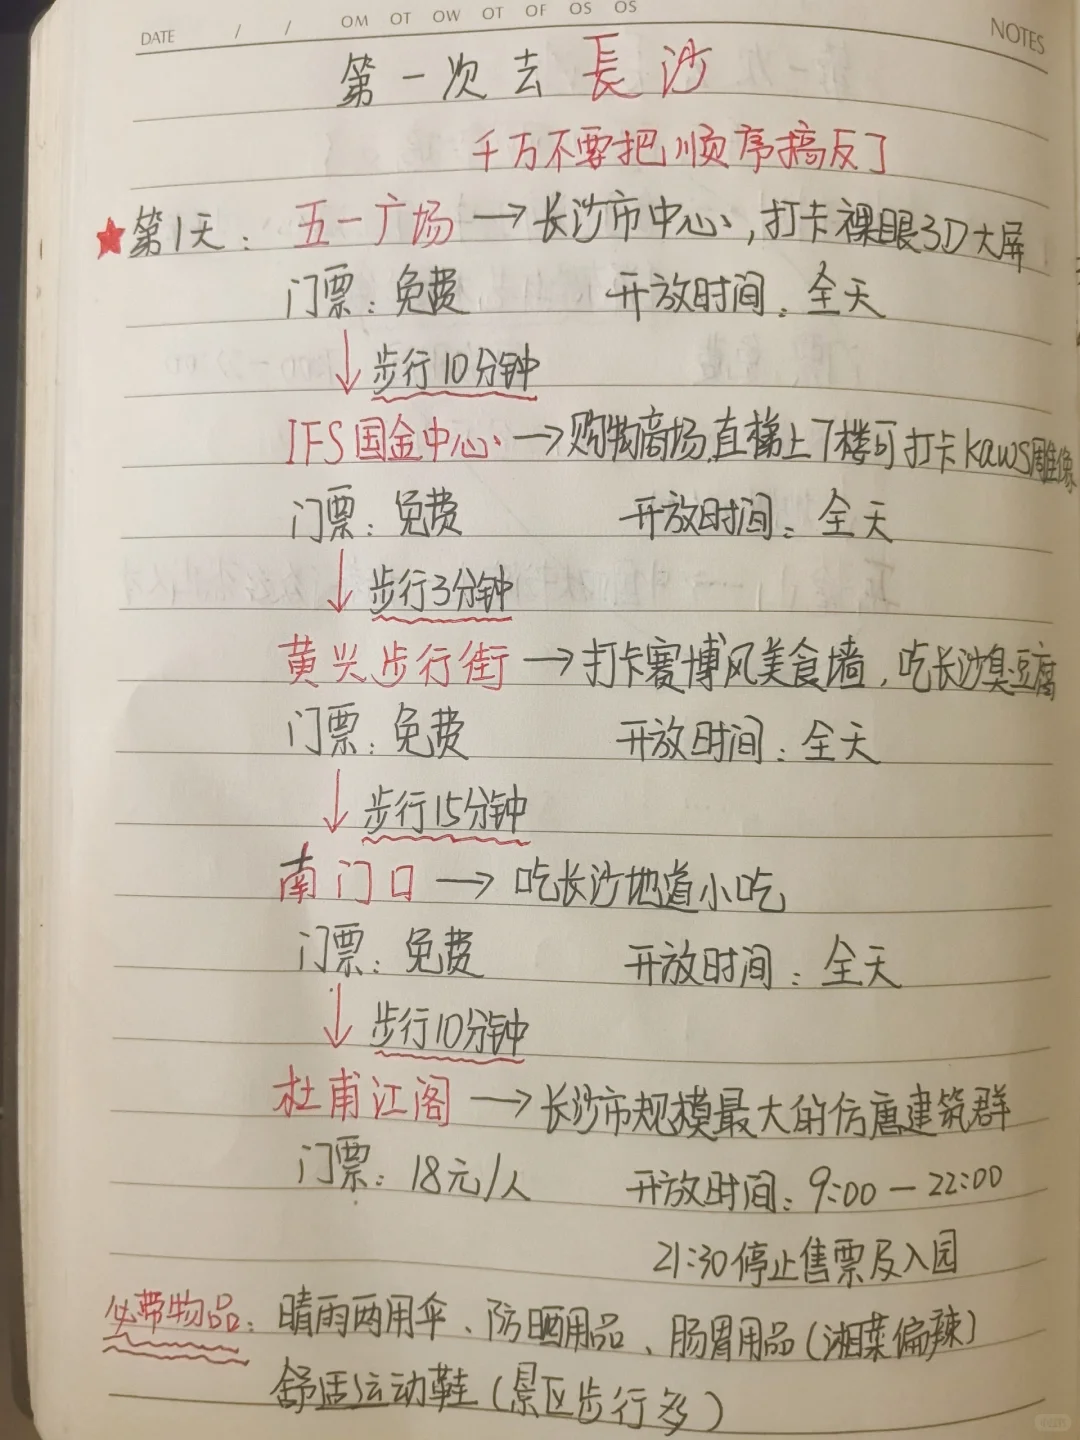 DATE / / OM OT OW OT OF OS OS NOTES
第一次去長沙
千万不要把顺序搞反了
第1天：五一广场→长沙市中心，打卡裸眼3D大屏
门票：免费 开放时间：全天
↓步行10分钟
IFS国金中心→购物商场，直梯上7楼可打卡kaws雕像
门票：免费 开放时间：全天
↓步行3分钟
黄兴步行街→打卡赛博风美食墙，吃长沙臭豆腐
门票：免费 开放时间：全天
↓步行15分钟
南门口→吃长沙地道小吃
门票：免费 开放时间：全天
↓步行10分钟
杜甫江阁→长沙市规模最大的仿唐建筑群
门票：18元/人 开放时间：9:00-22:00
21:30停止售票及入园
必带物品：晴雨两用伞、防晒用品、肠胃用品(湘菜偏辣)
舒适运动鞋(景区步行多)